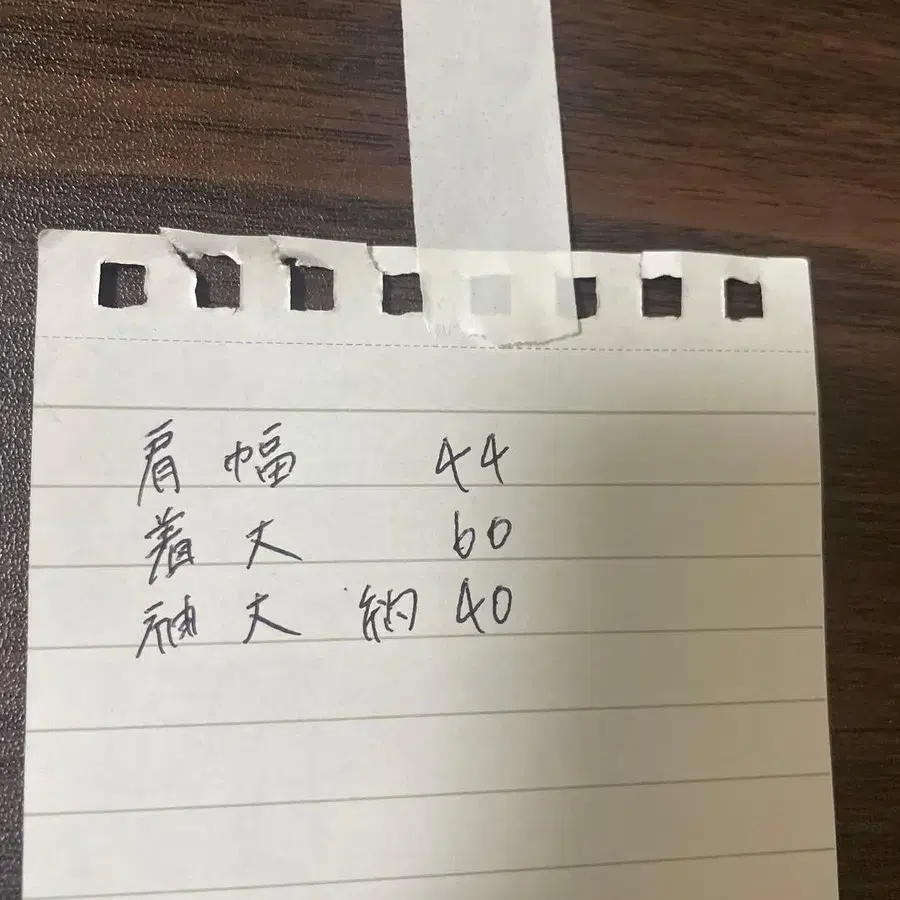 肩幅 44
着丈 60
袖丈 約 40